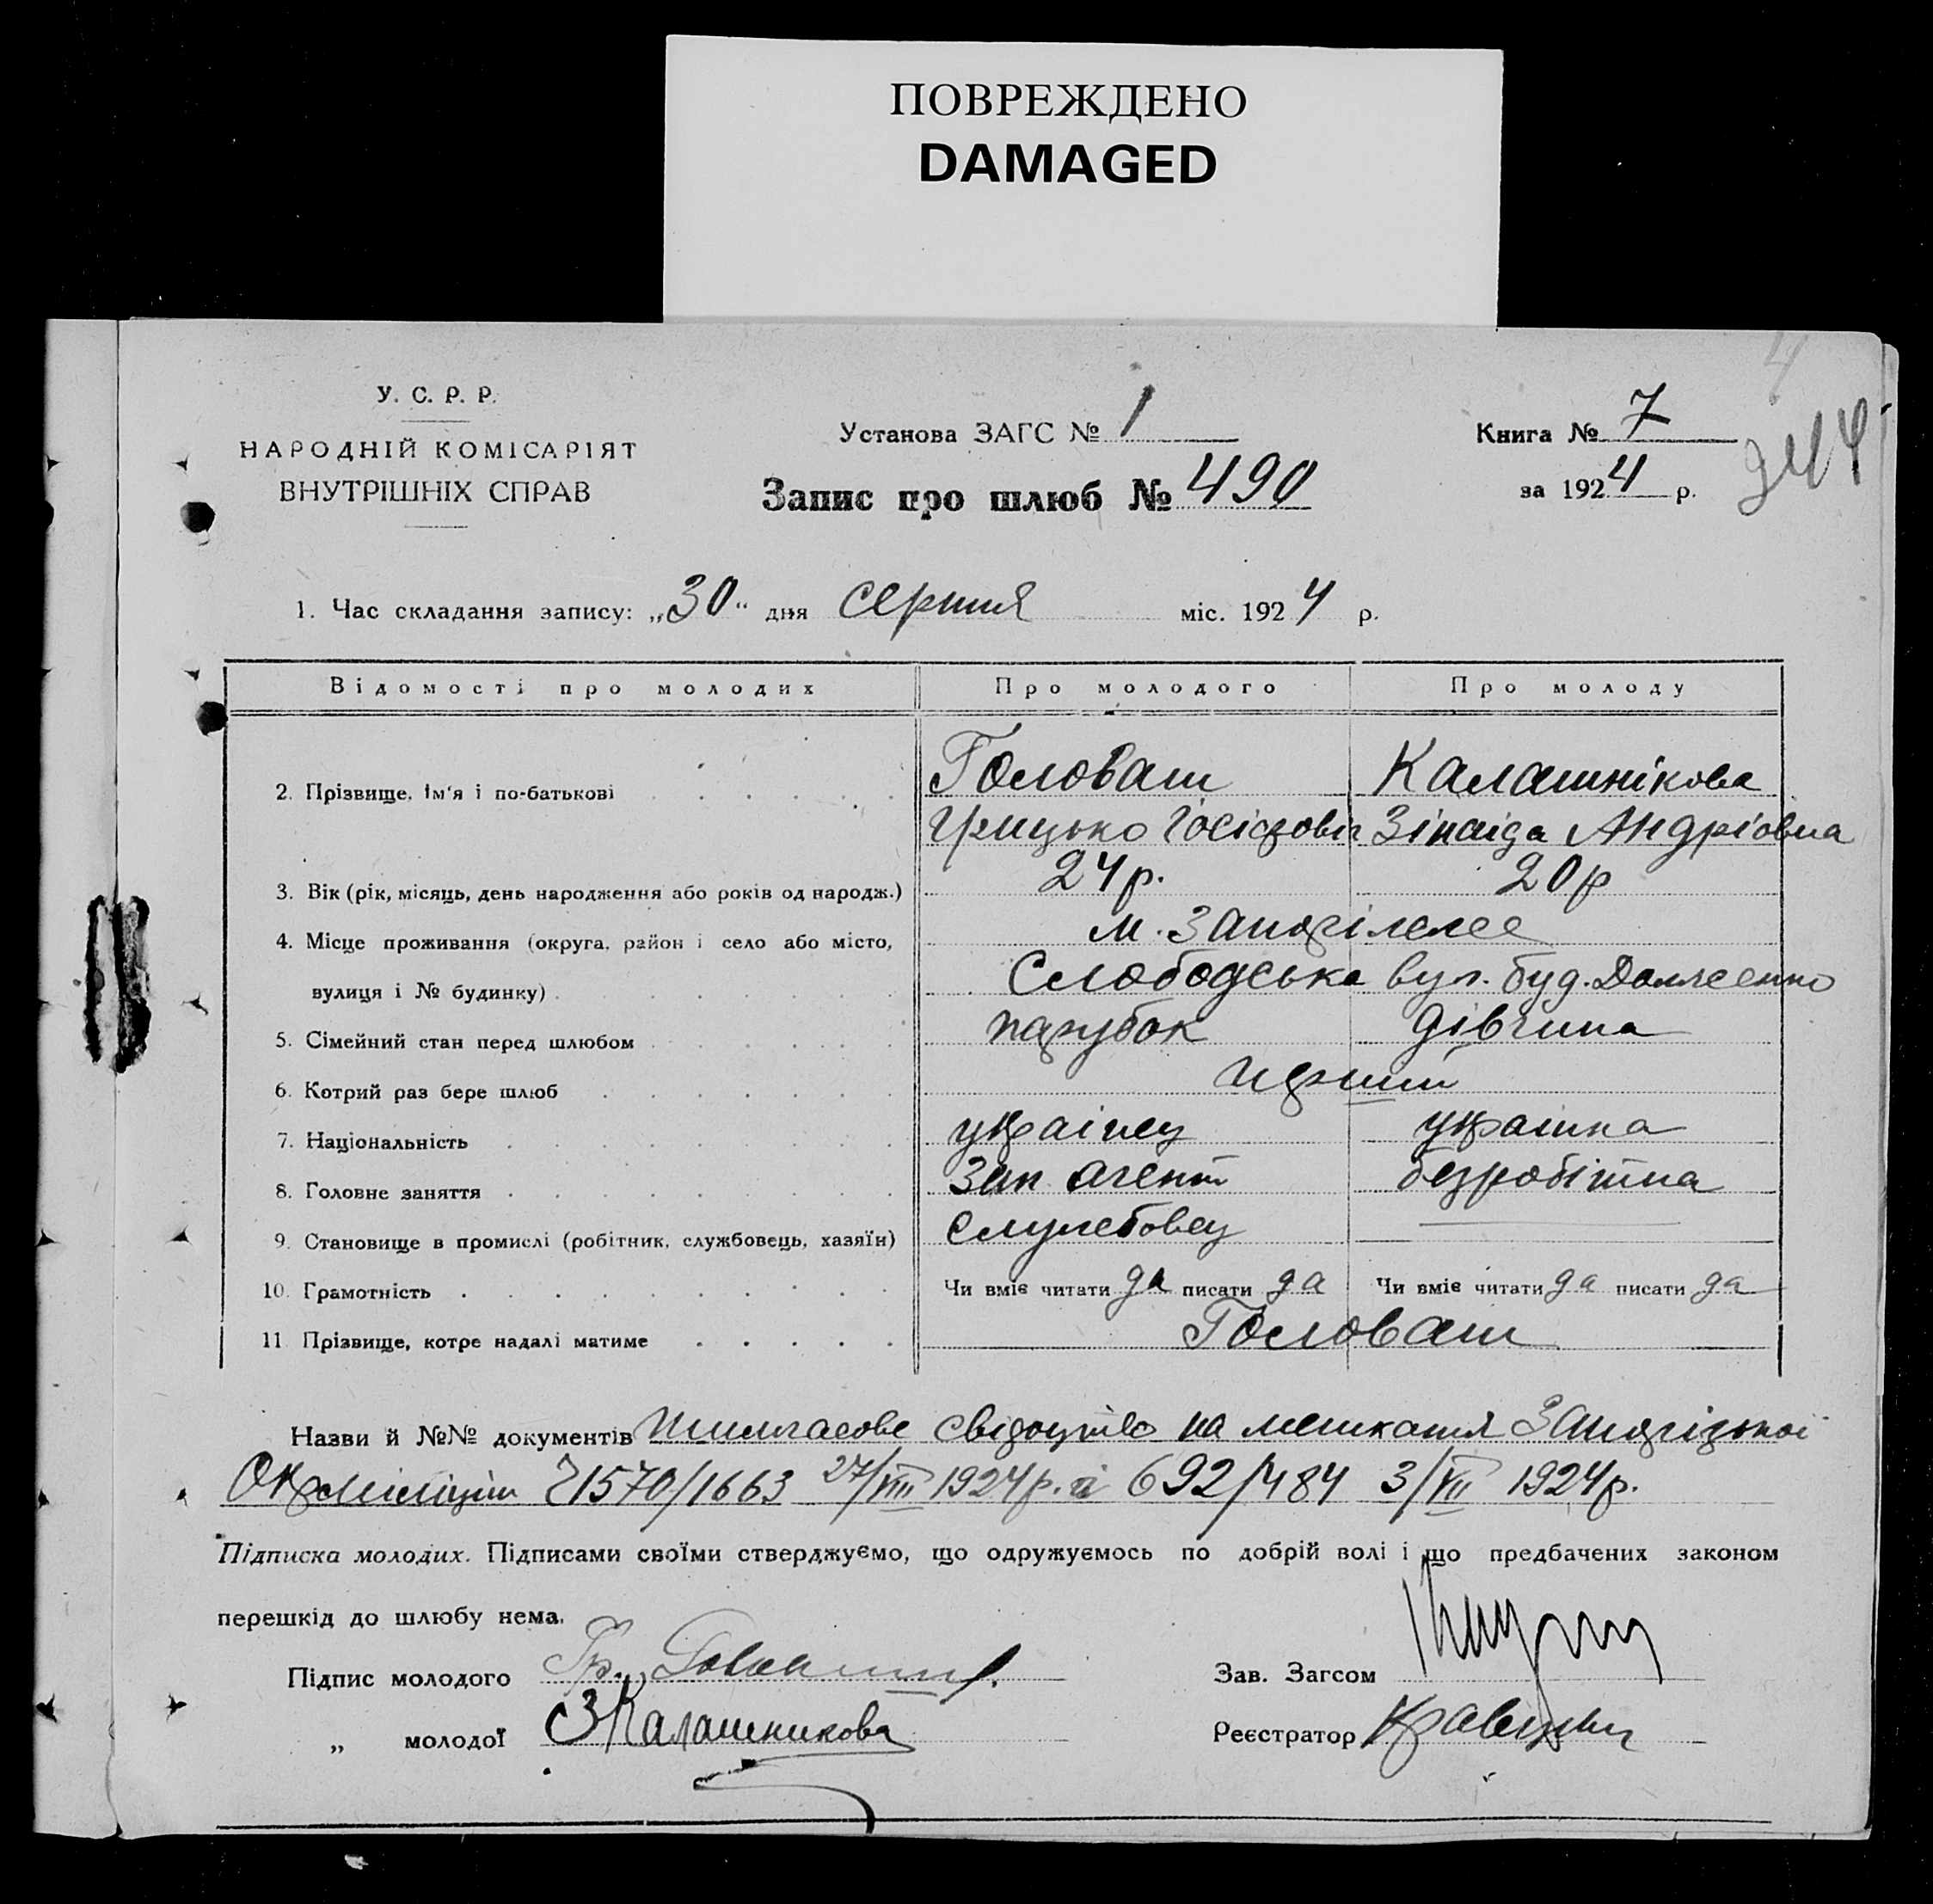 ПОВРЕЖДЕНО
DAMAGED
У. С. Р. Р.
НАРОДНІЙ КОМІСАРІЯТ
ВНУТРІШНІХ СПРАВ
Установа ЗАГС № 1
Запис про шлюб № 490
Книга № 7
за 1924 р.
244
1. Час складання запису: „30“ дня серпня міс. 1924 р.
Відомості про молодих Про молодого Про молоду
2. Прізвище, ім'я і по-батькові Головаш Калашнікова
Грицько Зінаіда Андріовна
3. Вік (рік, місяць, день народження або років од народж.) 24 р. 20 р
4. Місце проживання (округа, район і село або місто, м. Запоріжжє
вулиця і № будинку) Слободська вул. буд.
5. Сімейний стан перед шлюбом парубок дівчина
6. Котрий раз бере шлюб перший
7. Національність украінец украінка
8. Головне заняття Зап агент безробітна
9. Становище в промислі (робітник, службовець, хазяїн) Служебовец
10. Грамотність Чи вміє читати да писати да Чи вміє читати да писати да
11 Прізвище, котре надалі матиме Головаш
Назви й №№ документів тимчасове свідоцтво на мешкання Запорізькоі
Окрміліціи 1570/1663 27/VIII 1924р. і 692/484 3/VII 1924р.
Підписка молодих. Підписами своїми стверджуємо, що одружуємось по добрій волі і що предбачених законом
перешкід до шлюбу нема.
Підпис молодого Гр. Зав. Загсом
„ молодої ЗКалашникова Реєстратор